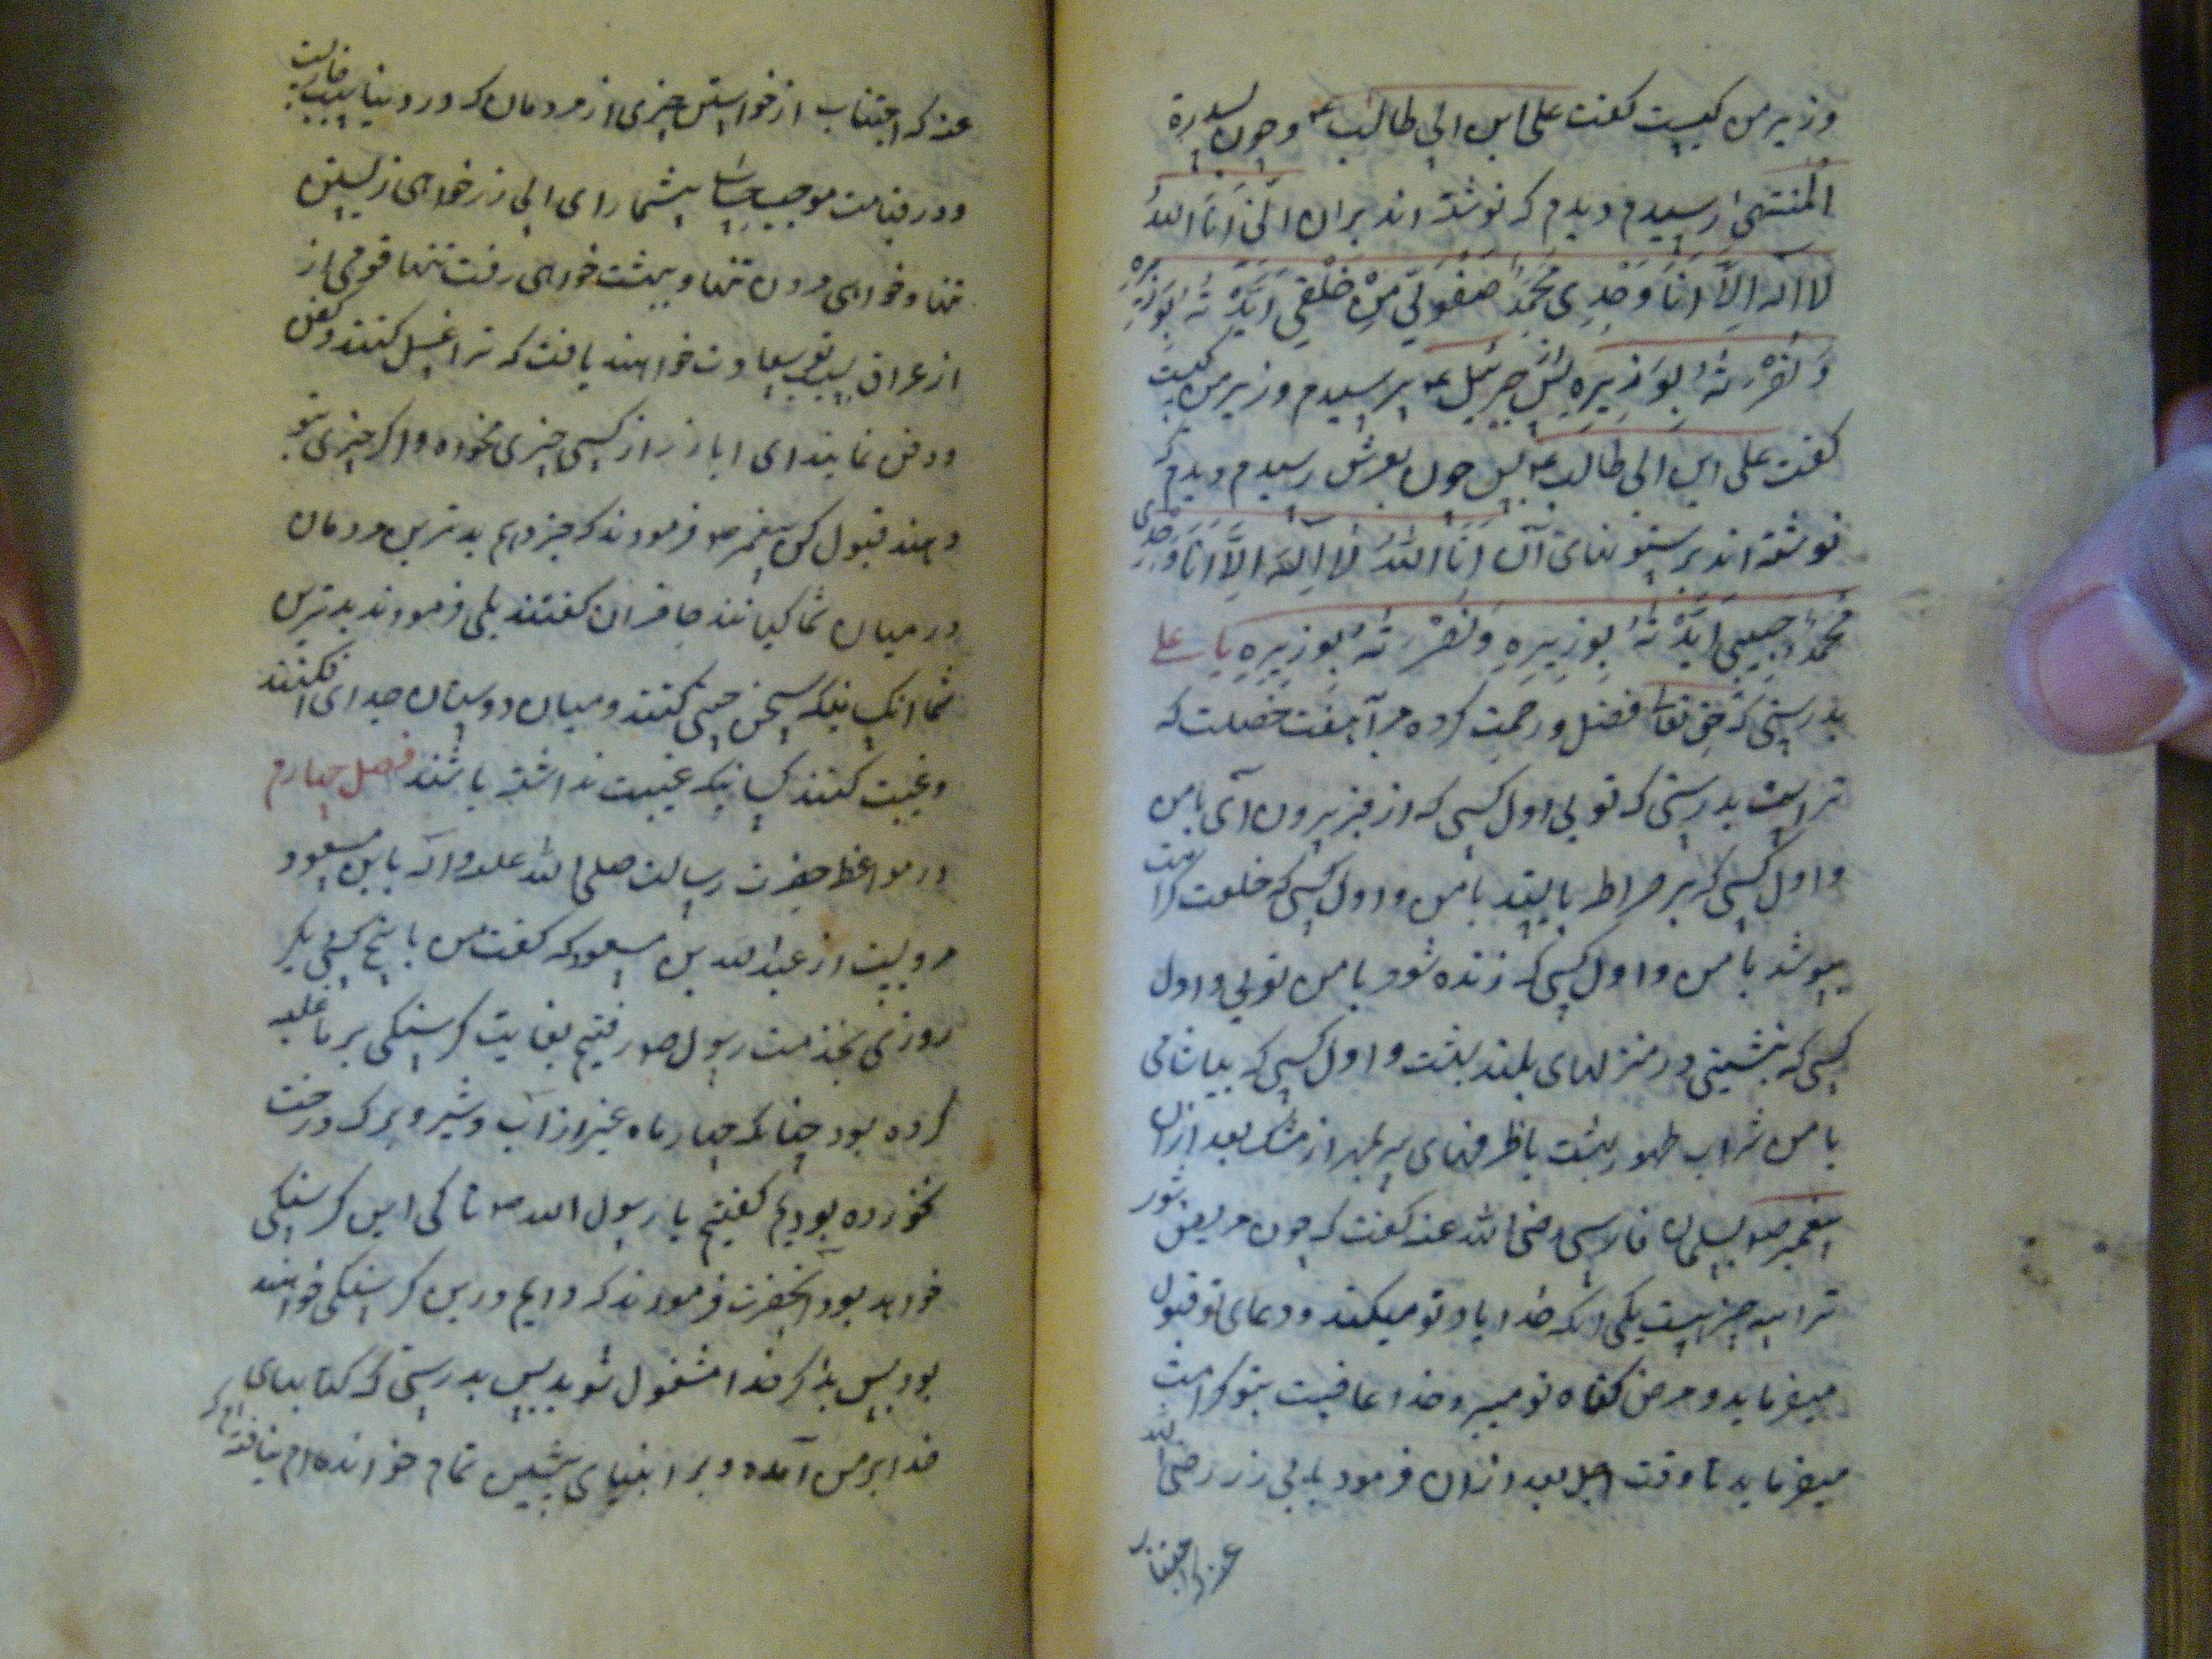 وزیر من کیست کفت علی ابن ابی طالب ع و چون بسدرة
المنتهی رسیدم دیدم که نوشته اند بران اِنّی اَنَا اللهُ
لا اله اِلّا اَنَا وَحْدِی مُحَمَّد صَفْوَتِی مِنْ خَلْقِی اَیَّدْتُهُ بِوَزِیرِهِ
وَ نَصَرْتُهُ بِوَزِیرِهِ پس از جبرئیل ع پرسیدم وزیر من کیست
کفت علی ابن ابی طالب ع پس چون بعرش رسیدم دیدم که
نوشته اند بر ستونهای آن اَنَا اللهُ لا اِلهَ اِلّا اَنَا وَحْدِی
مُحَمَّد حَبِیبِی اَیَّدْتُهُ بِوَزِیرِهِ وَ نَصَرْتُهُ بِوَزِیرِهِ یا علی
بدرستی که حق تعا فضل و رحمت کرده مرا هفت خصلت که
تراست بدرستی که تویی اول کسی که از قبر بیرون آی با من
و اول کسی که بر صراط بایستد با من و اول کسی که خلعت کرامت
بپوشد با من و اول کسی که زنده شود با من تویی و اول
کسی که بنشینی در منزلهای بلند بهشت و اول کسی که بیاشامی
با من شراب طهور بهشت با ظرفهای سر بمهر از مشک بعد ازان
پیغمبر ص بسلمان فارسی رضی الله عنه کفت که چون مریض شوی
ترا سه چیز است یکی انکه خدا یاد تو میکند و دعای تو قبول
میفرماید و مرض کناه تو میبرد و خدا عافیت بتو کرامت
میفرماید تا وقت اجل بعد ازان فرمود بابی زر رضی الله
عنه که اجتناب
عنه که اجتناب از خواستن چیزی از مردمان که در دنیا سبب خاریست
و در قیامت موجب حساب بیشمار ای ابی زر خواهی زیستن
تنها و خواهی مردن تنها و ببهشت خواهی رفت تنها قومی از
از عراق بسبب تو سعادت خواهند یافت که ترا غسل کنند و کفن
و دفن نمایند ای ابازر از کسی چیزی مخواه و اکر چیزی بتو
دهند قبول کن پیغمبر ص فرمودند که خبر دهم بدترین مردمان
در میان شما کیانند حاضران کفتند بلی فرمودند بدترین
شما انکسانیکه سخن چینی کنند و میان دوستان جدای افکنند
و غیبت کنند کسانیکه عیب نداشته باشند فصل چهارم
در مواعظ حضرت رسالت صلی الله علیه و اله بابن مسعود
مرویست از عبدالله بن مسعود که کفت من با پنج کس دیکر
روزی بخدمت رسول ص رفتیم بغایت کرسنکی بر ما غلبه
کرده بود چنانکه چهار ماه غیر از آب و شیر و برک درخت
نخورده بودیم کفتیم یا رسول الله ص تا کی این کرسنکی
خواهد بود آنحضرت فرمودند که دایم درین کرسنکی خواهند
بود پس بذکر خدا مشغول شوید پس بدرستی که کتابهای
خدا بر من آمده و بر انبیای پیشین تمام خوانده ام نیافته ام که